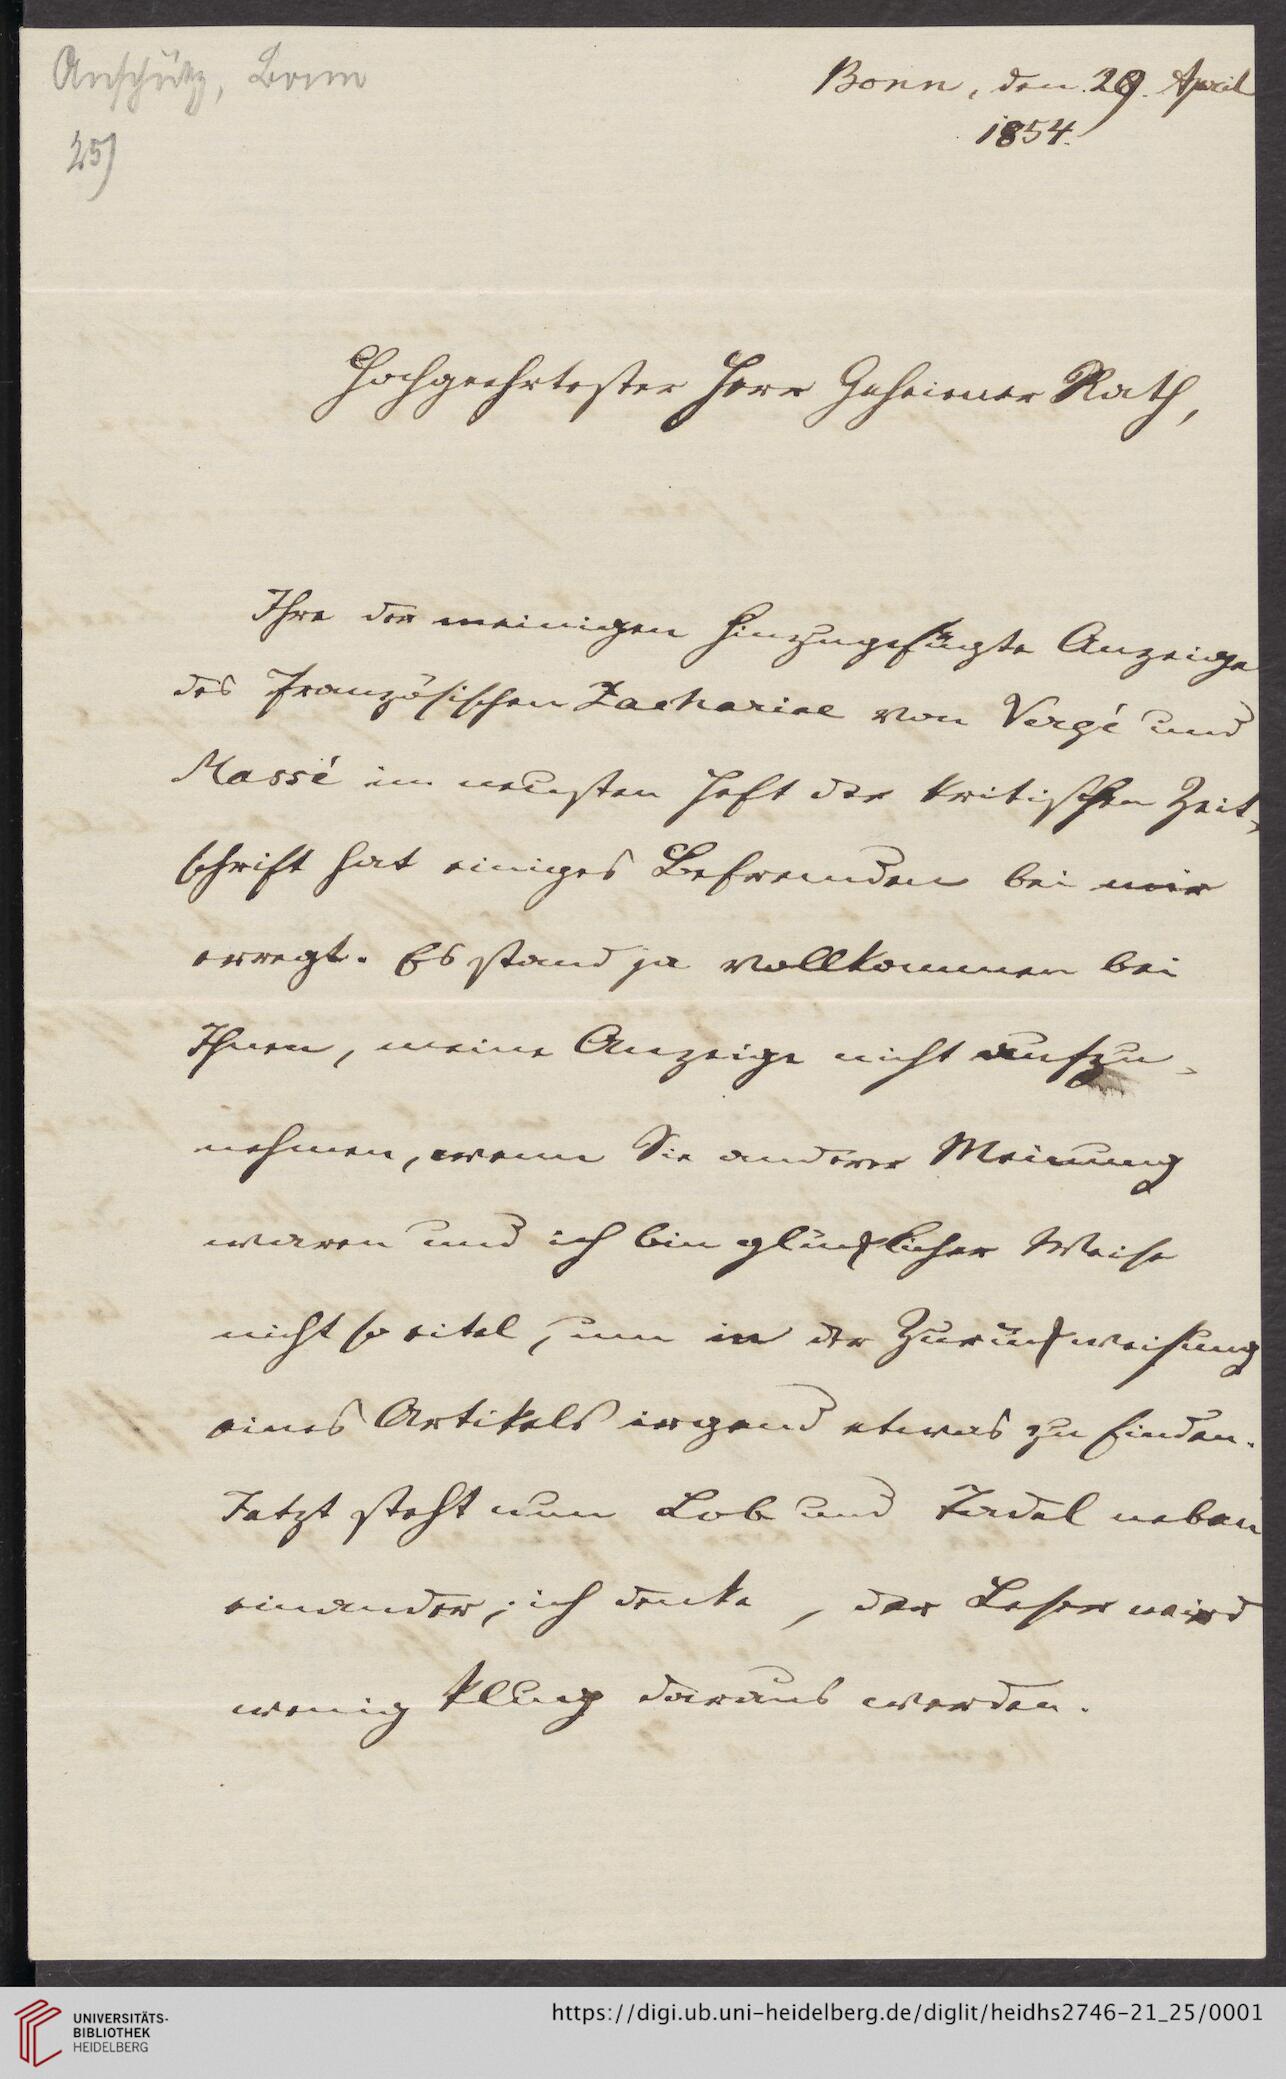 Anschütz, Bonn
25)
Bonn, den 29. April
1854.
Hochgeehrtester Herr Geheimer Rath,
Ihre der meinigen hinzugefügte Anzeige
des Französischen Zachariae von Vergé und
Massé im neusten Heft der kritischen Zeit-
schrift hat einiges Befremden bei mir
erregt. Es stand ja vollkommen bei
Ihnen, meine Anzeige nicht aufzu-
nehmen, wenn Sie anderer Meinung
waren und ich bin glücklicher Weise
nicht so eitel, um in der Zurückweisung
eines Artikels irgend etwas zu finden.
Jetzt steht nun Lob und Tadel neben
einander; ich denke, der Leser wird
wenig klug daraus werden.
UNIVERSITÄTS-
BIBLIOTHEK
HEIDELBERG
https://digi.ub.uni-heidelberg.de/diglit/heidhs2746-21_25/0001